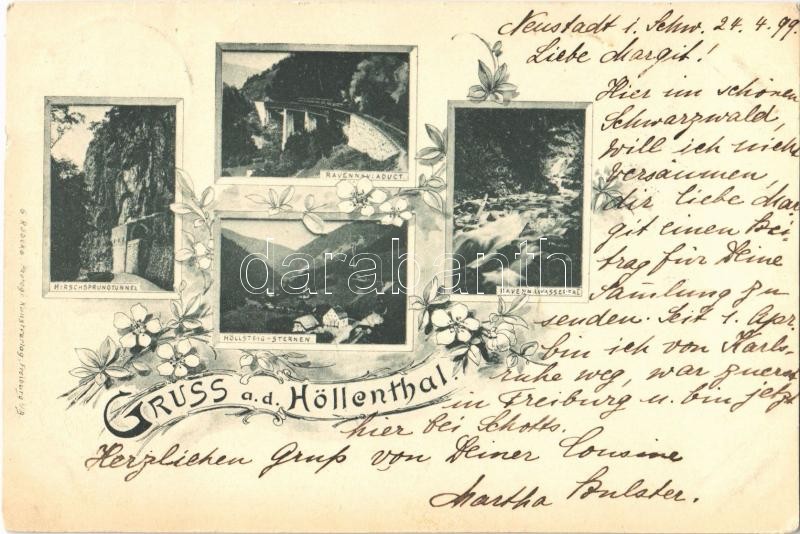 Neustadt i. Schw. 24. 4. 99.
Liebe Margit!
Hier im schönen
Schwarzwald,
will ich nicht
versäumen,
dir liebe Mar-
git einen Bei-
trag für Deine
Samlung zu
senden. Seit 1. Apr.
bin ich von Karls-
ruhe weg, war zuerst
in Freiburg u. bin jetzt
hier bei Schotts.
Herzlichen Gruß von Deiner Cousine
Martha
RAVENNAVIADUCT
HIRSCHSPRUNGTUNNEL
HÖLLSTEIG-STERNEN
GRUSS a.d. Höllenthal.
darabanth